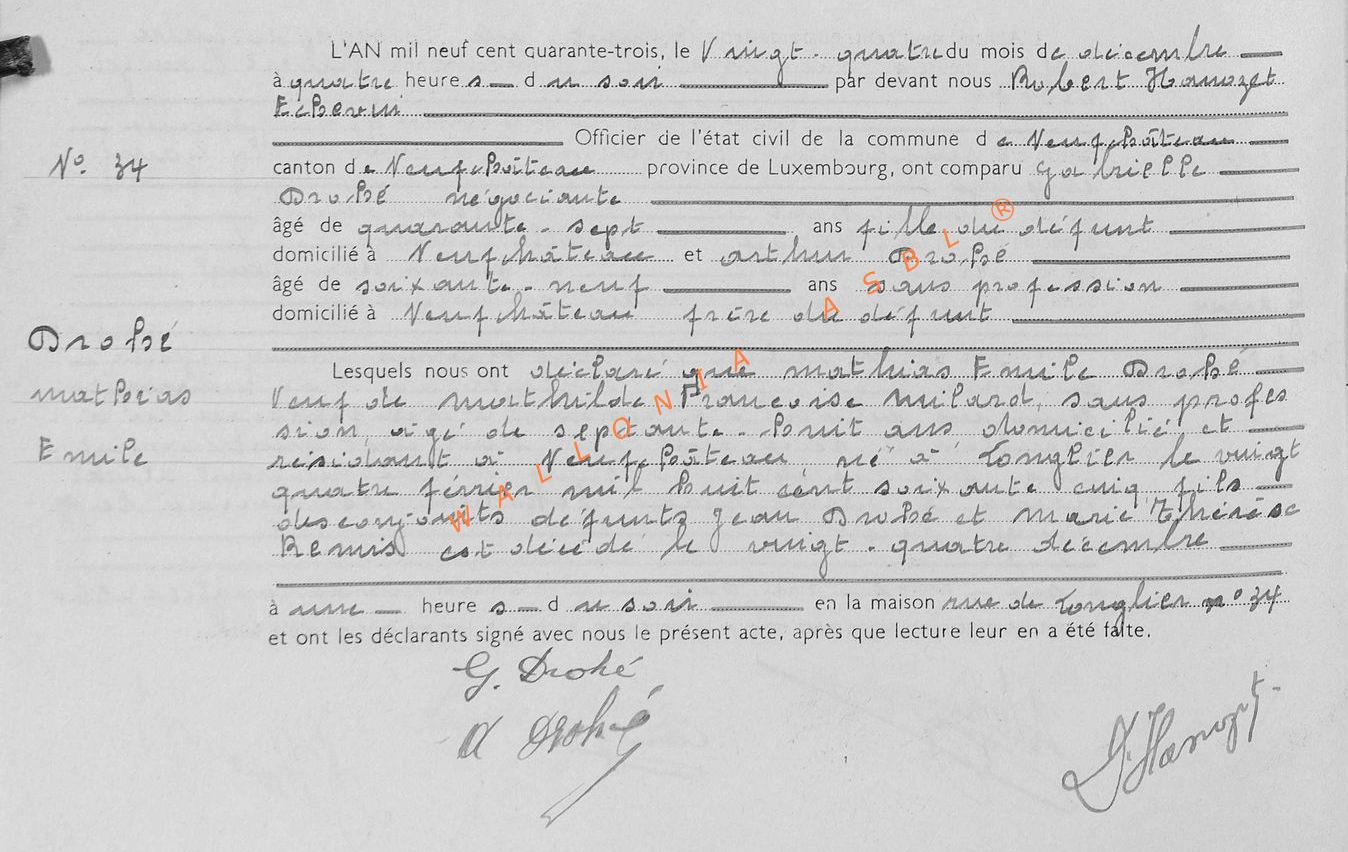 L'AN mil neuf cent quarante-trois, le Vingt-quatre du mois de décembre
à quatre heure s d u soir par devant nous Robert Hanozet
Echevin
Officier de l'état civil de la commune d e Neufchâteau
N° 34
canton de Neufchâteau province de Luxembourg, ont comparu Gabrielle
Drohé négociante
âgé de quarante-sept ans fille du défunt
domicilié à Neufchâteau et arthur Drohé
âgé de soixante-neuf ans sans profession
domicilié à Neufchâteau frère du défunt
Drohé
mathias
Emile
Lesquels nous ont déclaré que mathias Emile Drohé
Veuf de mathilde Françoise Milard, sans profes
sion, agé de septante-huit ans domicilié et
résidant à Neufchâteau, né à Longlier le vingt
quatre février mil huit cent soixante cinq, fils
des conjoints défunts Jean Drohé et Marie Thérèse
Remis est décédé le vingt-quatre décembre
à une heure s d u soir en la maison rue de Longlier n° 34
et ont les déclarants signé avec nous le présent acte, après que lecture leur en a été faite.
G. Drohé
A Drohé
Hanozet
WALLONIA ASBL ®